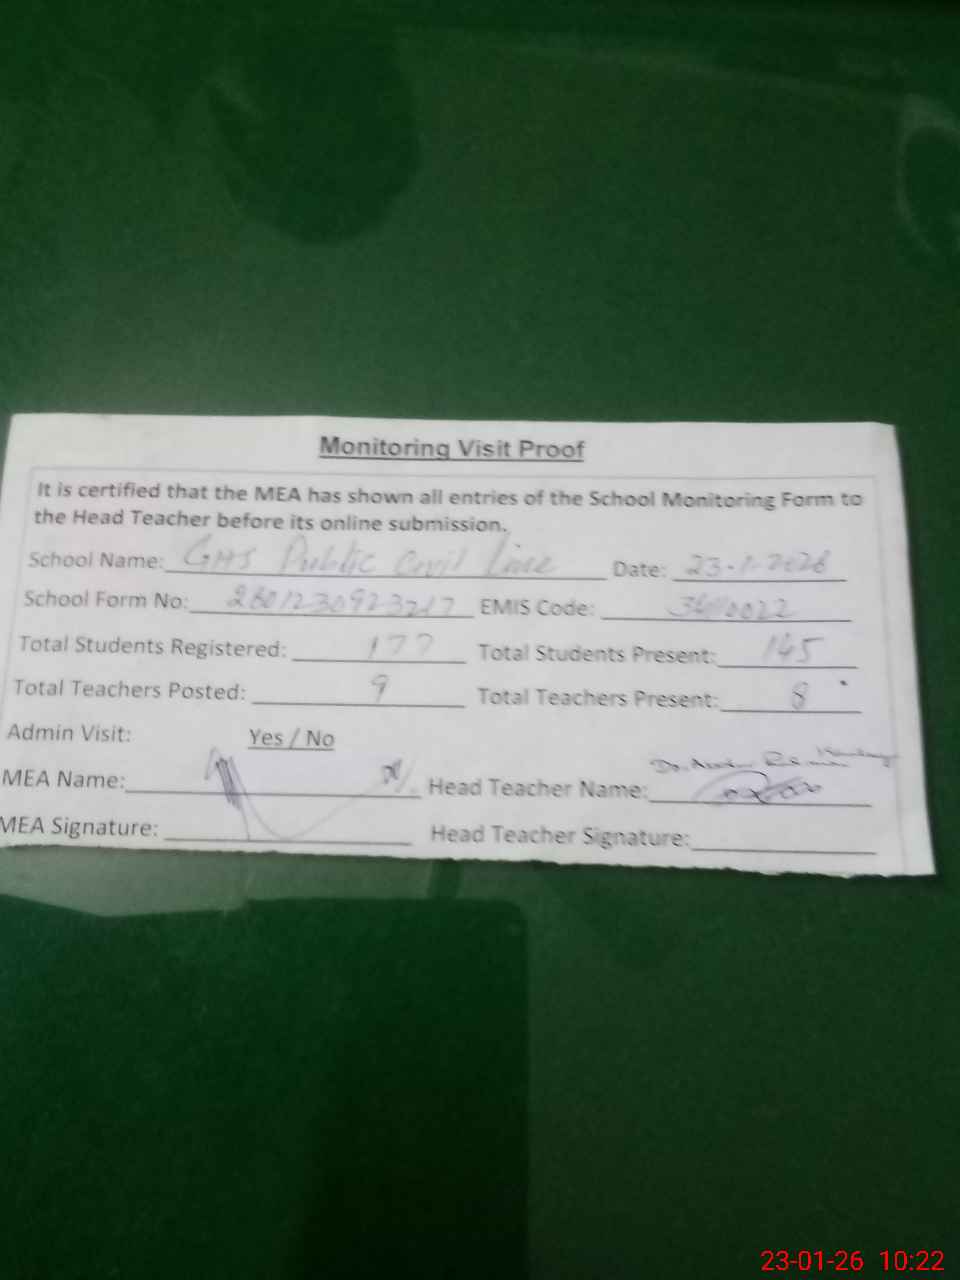 Monitoring Visit Proof
It is certified that the MEA has shown all entries of the School Monitoring Form to
the Head Teacher before its online submission.
School Name: GHS Public Civil Line Date: 23-1-2026
School Form No: EMIS Code:
Total Students Registered: 177 Total Students Present: 145
Total Teachers Posted: 9 Total Teachers Present: 8
Admin Visit: Yes / No
MEA Name: Head Teacher Name: Dr.
MEA Signature: Head Teacher Signature:
23-01-26 10:22